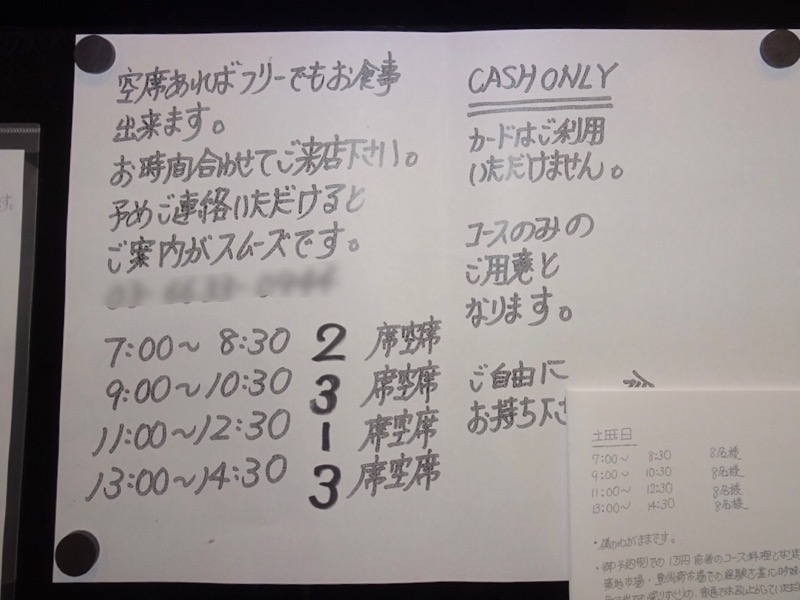 空席あればフリーでもお食事
出来ます。
お時間合わせてご来店下さい。
予めご連絡いただけると
ご案内がスムーズです。
7:00〜 8:30 2 席空席
9:00〜10:30 3 席空席
11:00〜12:30 1 席空席
13:00〜14:30 3 席空席
CASH ONLY
カードはご利用
いただけません。
コースのみの
ご用意と
なります。
ご自由に
お持ち下さ
土曜日
7:00〜 8:30 8名様
9:00〜 10:30 8名様
11:00〜 12:30 8名様
13:00〜 14:30 8名様
・僕のわがままです。
1万円前後のコース料理と
築地市場・豊洲市場での経験を
す。